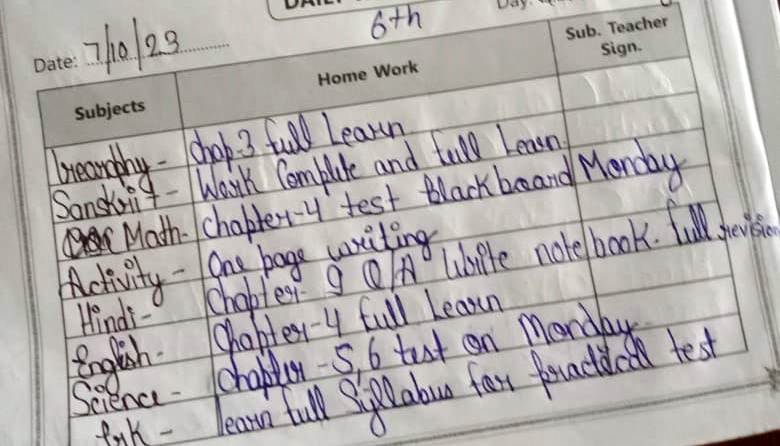 DAILY
Day:
6th
Date: 7/10/23
Sub. Teacher Sign.
Subjects Home Work
Geography - Chap-3 full Learn
Sanskrit - Work Complete and full Learn
Math - Chapter-4 test blackboard Monday
Activity - One page writing
Hindi - Chapter- 9 Q/A Write notebook. full revision
English - Chapter-4 full Learn
Science - Chapter -5,6 test on Monday
learn full Syllabus for practical test